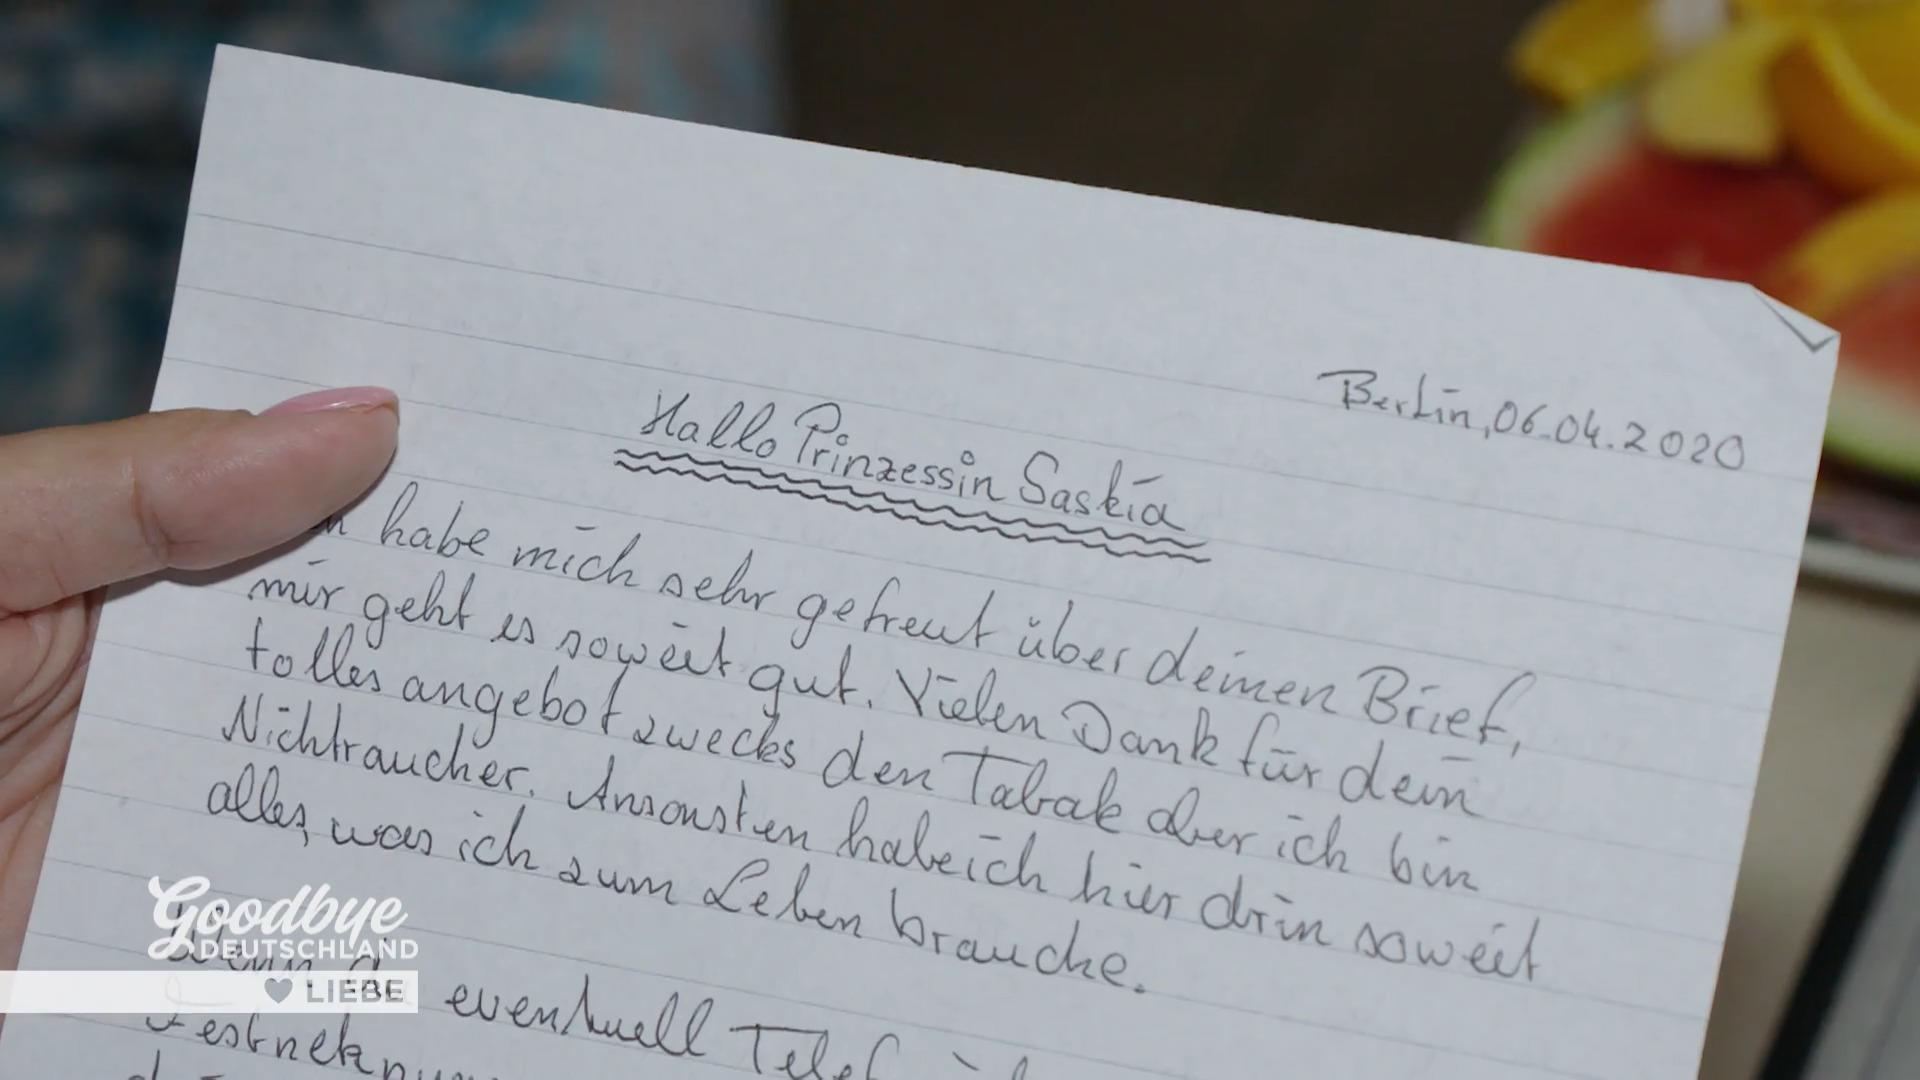 Berlin, 06.04.2020
Hallo Prinzessin Saskia
habe mich sehr gefreut über deinen Brief,
mir geht es soweit gut. Vielen Dank für dein
tolles angebot zwecks den Tabak aber ich bin
Nichtraucher. Ansonsten habe ich hier drin soweit
alles, was ich zum Leben brauche.
Wenn du eventuell
Goodbye
DEUTSCHLAND
LIEBE